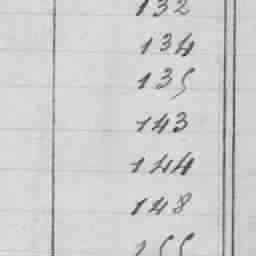 132
134
135
143
144
148
155